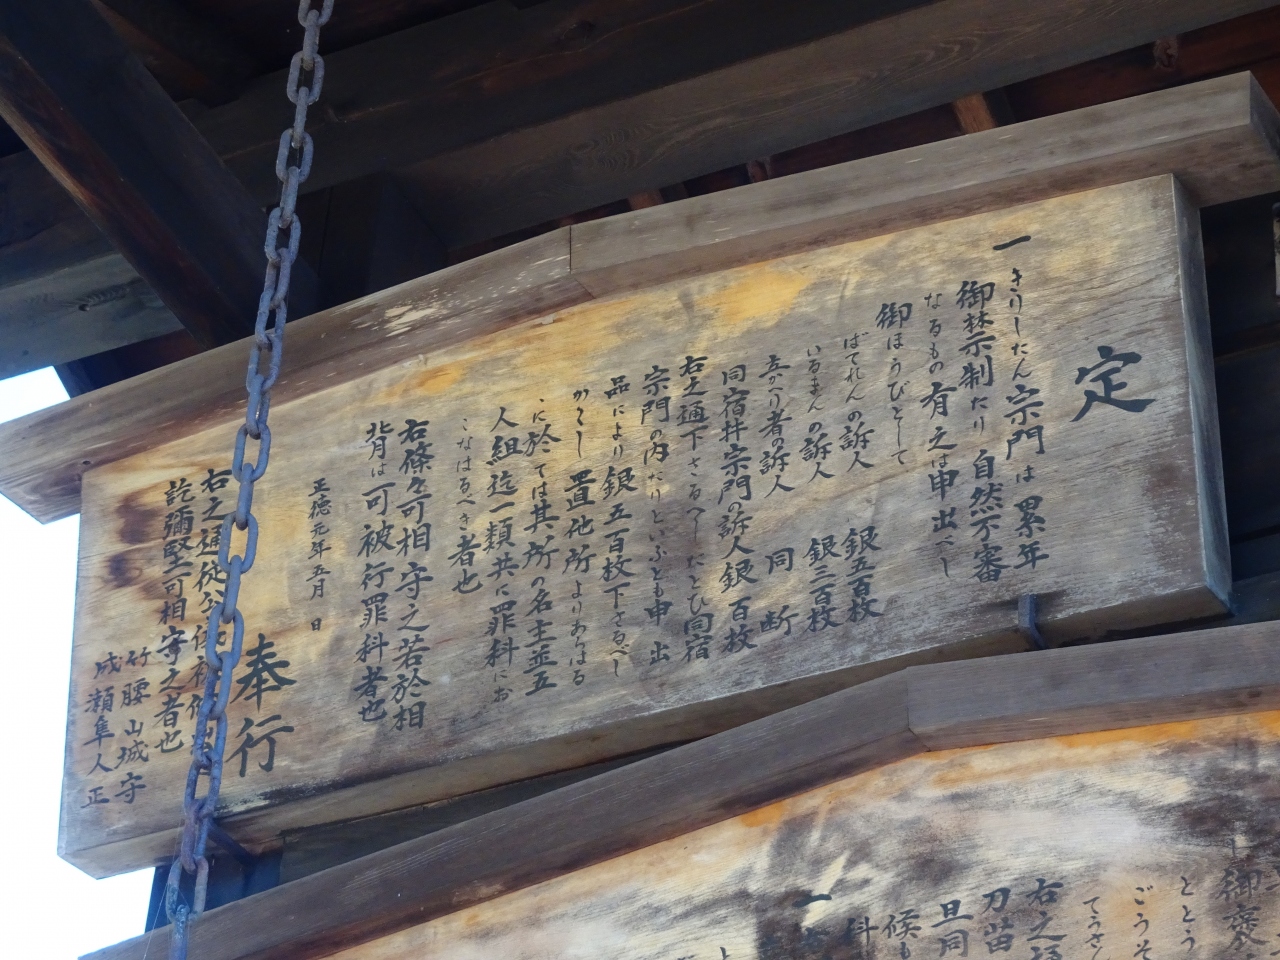 定
一
きりしたん宗門は累年
御禁示制たり自然不審
なるもの有之は申出べし
御ほうびとして
ばてれんの訴人 銀五百枚
いるまんの訴人 銀三百枚
立かへり者の訴人 同断
同宿并宗門の訴人銀百枚
右之通下さるへしたとひ同宿
宗門の内たりといふとも申出
品により銀五百枚下さるべし
かくし置他所よりあらはる
に於ては其所の名主並五
人組迄一類共に罪科にお
こなはるべき者也
右條々可相守之若於相
背は可被行罪科者也
正徳元年五月 日
奉行
右之通従公
訖彌堅可相守之者也
竹腰山城守
成瀬隼人正
一
右之
刀苗
旦同
候も
科
御褒
ととう
ごうそ
てうさん